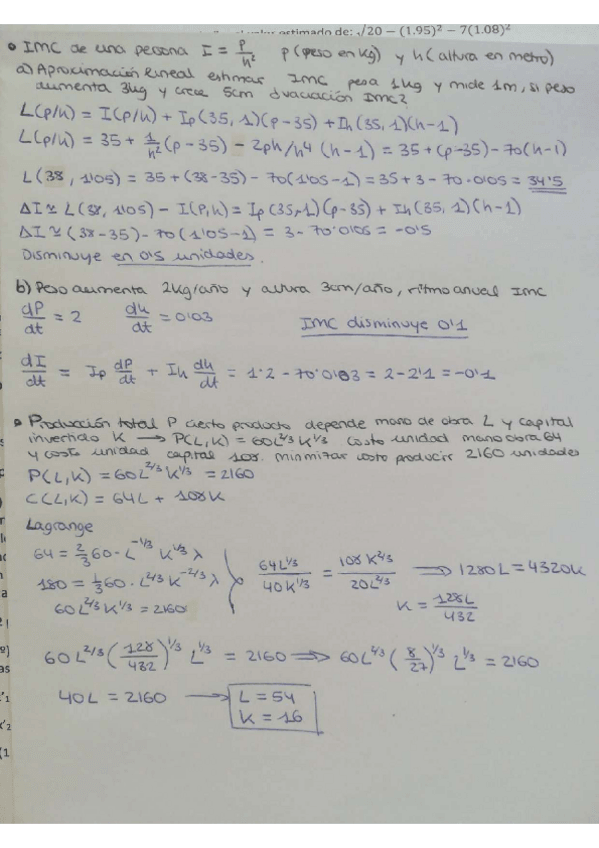 estimado de: √20 − (1.95)² − 7(1.08)²
• IMC de una persona I = P/h² p (peso en kg) y h (altura en metro)
a) Aproximación lineal estimar IMC pesa 1kg y mide 1m, si peso
aumenta 3kg y crece 5cm ¿variación IMC?
L(p/h) = I(p/h) + Ip(35,1)(p-35) + Ih(35,1)(h-1)
L(p/h) = 35 + 1/h² (p-35) - 2ph/h⁴ (h-1) = 35 + (p-35) - 70(h-1)
L(38, 1'05) = 35 + (38-35) - 70(1'05-1) = 35 + 3 - 70·0'05 = 34'5
ΔI ≃ L(38, 1'05) - I(P,h) = Ip(35,1)(p-35) + Ih(35,1)(h-1)
ΔI ≃ (38-35) - 70(1'05-1) = 3 - 70·0'05 = -0'5
Disminuye en 0'5 unidades.
b) Peso aumenta 2kg/año y altura 3cm/año, ritmo anual IMC
dP/dt = 2 dh/dt = 0'03 IMC disminuye 0'1
dI/dt = Ip dP/dt + Ih dh/dt = 1·2 - 70·0'03 = 2 - 2'1 = -0'1
• Producción total P cierto producto depende mano de obra L y capital
invertido K → P(L,K) = 60L^2/3 K^1/3 costo unidad mano obra 64
y costo unidad capital 108. minimizar costo producir 2160 unidades
P(L,K) = 60L^2/3 K^1/3 = 2160
C(L,K) = 64L + 108K
Lagrange
64 = 2/3 60·L^-1/3 K^1/3 λ
180 = 1/3 60·L^2/3 K^-2/3 λ
60L^2/3 K^1/3 = 2160
64L^1/3 / 40K^1/3 = 108K^2/3 / 20L^2/3 → 1280L = 4320K
K = 128L/432
60L^2/3 (128/432)^1/3 L^1/3 = 2160 → 60L^2/3 (8/27)^1/3 L^1/3 = 2160
40L = 2160 → L = 54
K = 16